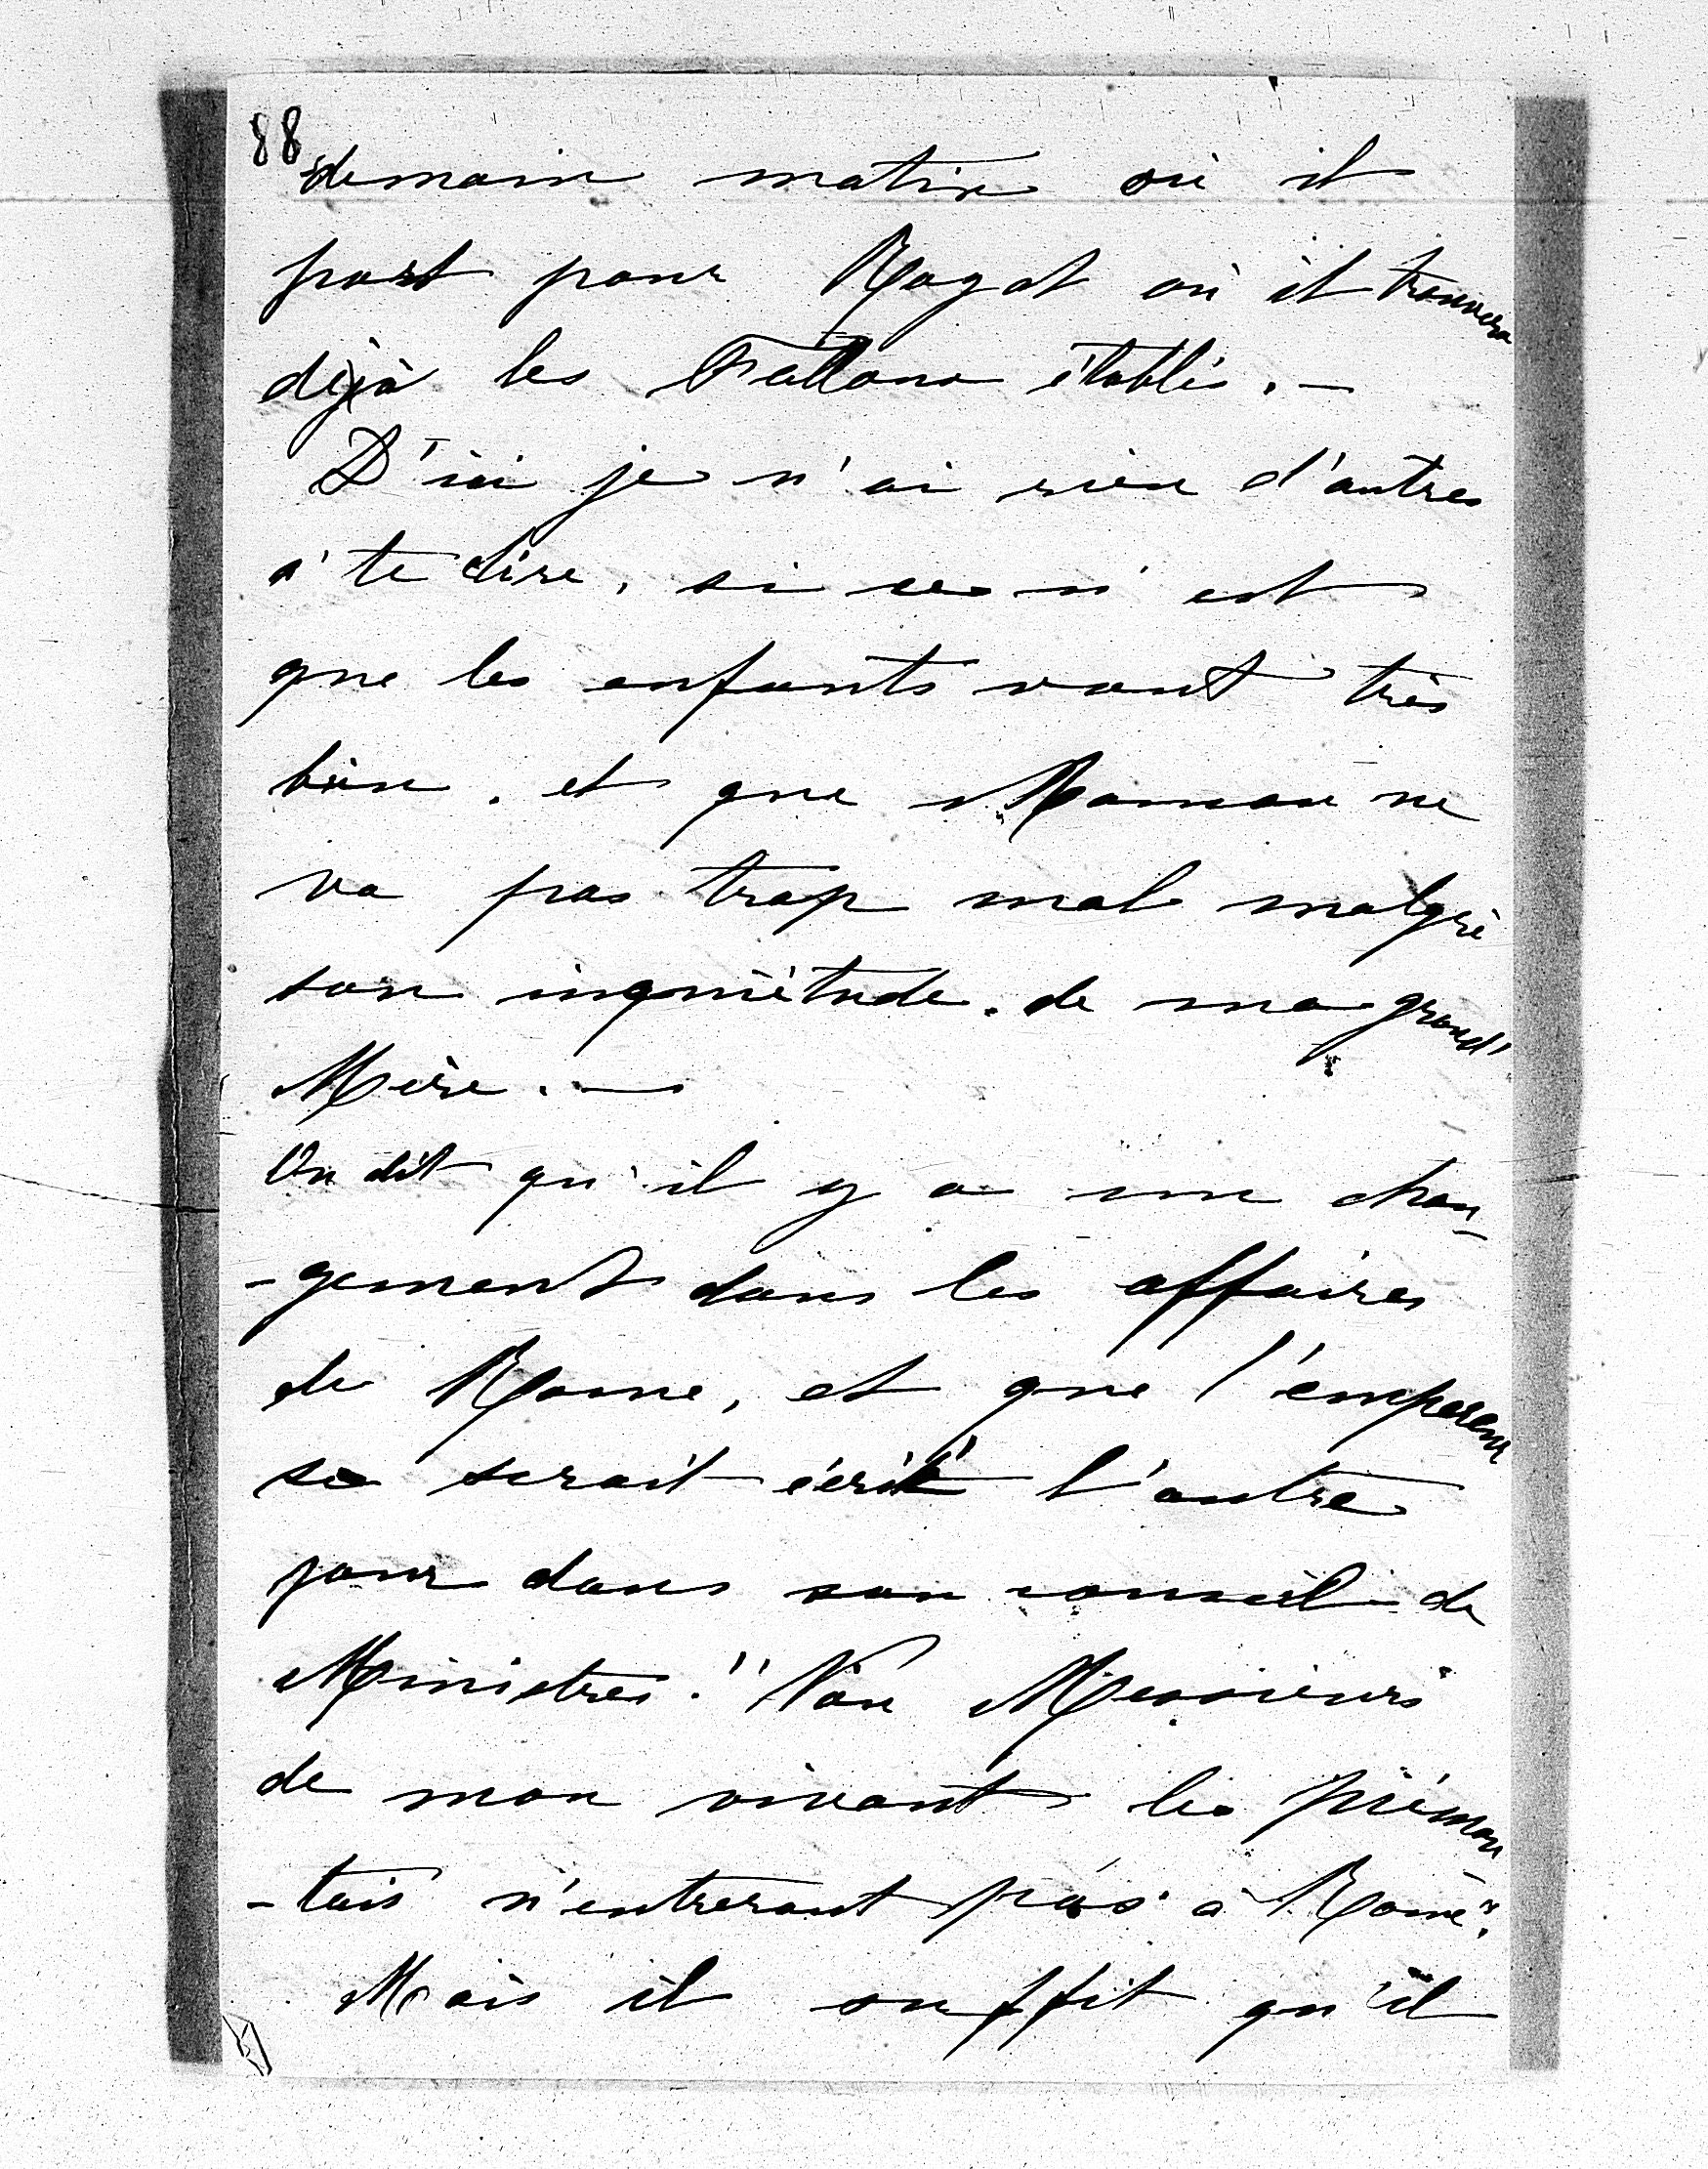 88
demain matin où il
part pour Ragat où il trouvera
déjà les établis. —
D'ici je n'ai rien d'autres
à te dire, si ce n'est
que les enfants vont très
bien. et que Maman ne
va pas trop mal malgré
son inquiètude. de ma grand'
Mère. —
On dit qu'il y a un chan-
-gement dans les affaires
de Rome, et que l'empereur
se serait écrié l'autre
jour dans son conseil de
Ministres. "Non Messieurs
de mon vivant les Piémon-
-tais n'entreront pas à Rome".
Mais il suffit qu'il